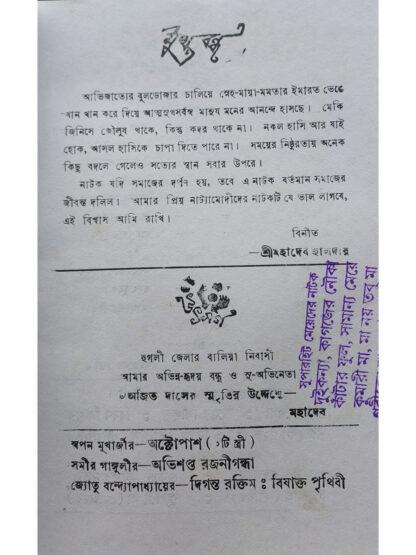 মুখবন্ধ
আভিজাত্যের বুলডোজার চালিয়ে স্নেহ-মায়া-মমতার ইমারত ভেঙে
খান খান করে দিয়ে আত্মসুখসর্বস্ব মানুষ মনের আনন্দে হাসছে। মেকি
জিনিসে জৌলুষ থাকে, কিন্তু কদর থাকে না। নকল হাসি আর যাই
হোক, আসল হাসিকে চাপা দিতে পারে না। সময়ের নিষ্ঠুরতায় অনেক
কিছু বদলে গেলেও সত্যের স্থান সবার উপরে।
নাটক যদি সমাজের দর্পণ হয়, তবে এ নাটক বর্তমান সমাজের
জীবন্ত দলিল। আমার প্রিয় নাট্যামোদীদের নাটকটি যে ভাল লাগবে,
এই বিশ্বাস আমি রাখি।
বিনীত
—শ্রীমহাদেব হালদার
উৎসর্গ
হুগলী জেলার বালিয়া নিবাসী
আমার অভিন্ন-হৃদয় বন্ধু ও সু-অভিনেতা
অজিত দাসের স্মৃতির উদ্দেশ্যে—
মহাদেব
স্বপন মুখার্জীর—অক্টোপাশ (১টি স্ত্রী)
সমীর গাঙ্গুলীর—অভিশপ্ত রজনীগন্ধা
জ্যোতু বন্দ্যোপাধ্যায়ের—দিগন্ত রক্তিম : বিষাক্ত পৃথিবী
সুপারহিট মেয়েদের নাটক
দুইকন্যা, কাগজের নৌকা
কাঁটার ফুল, সামান্য মেয়ে
কুমারী মা, মা নয় তবু মা